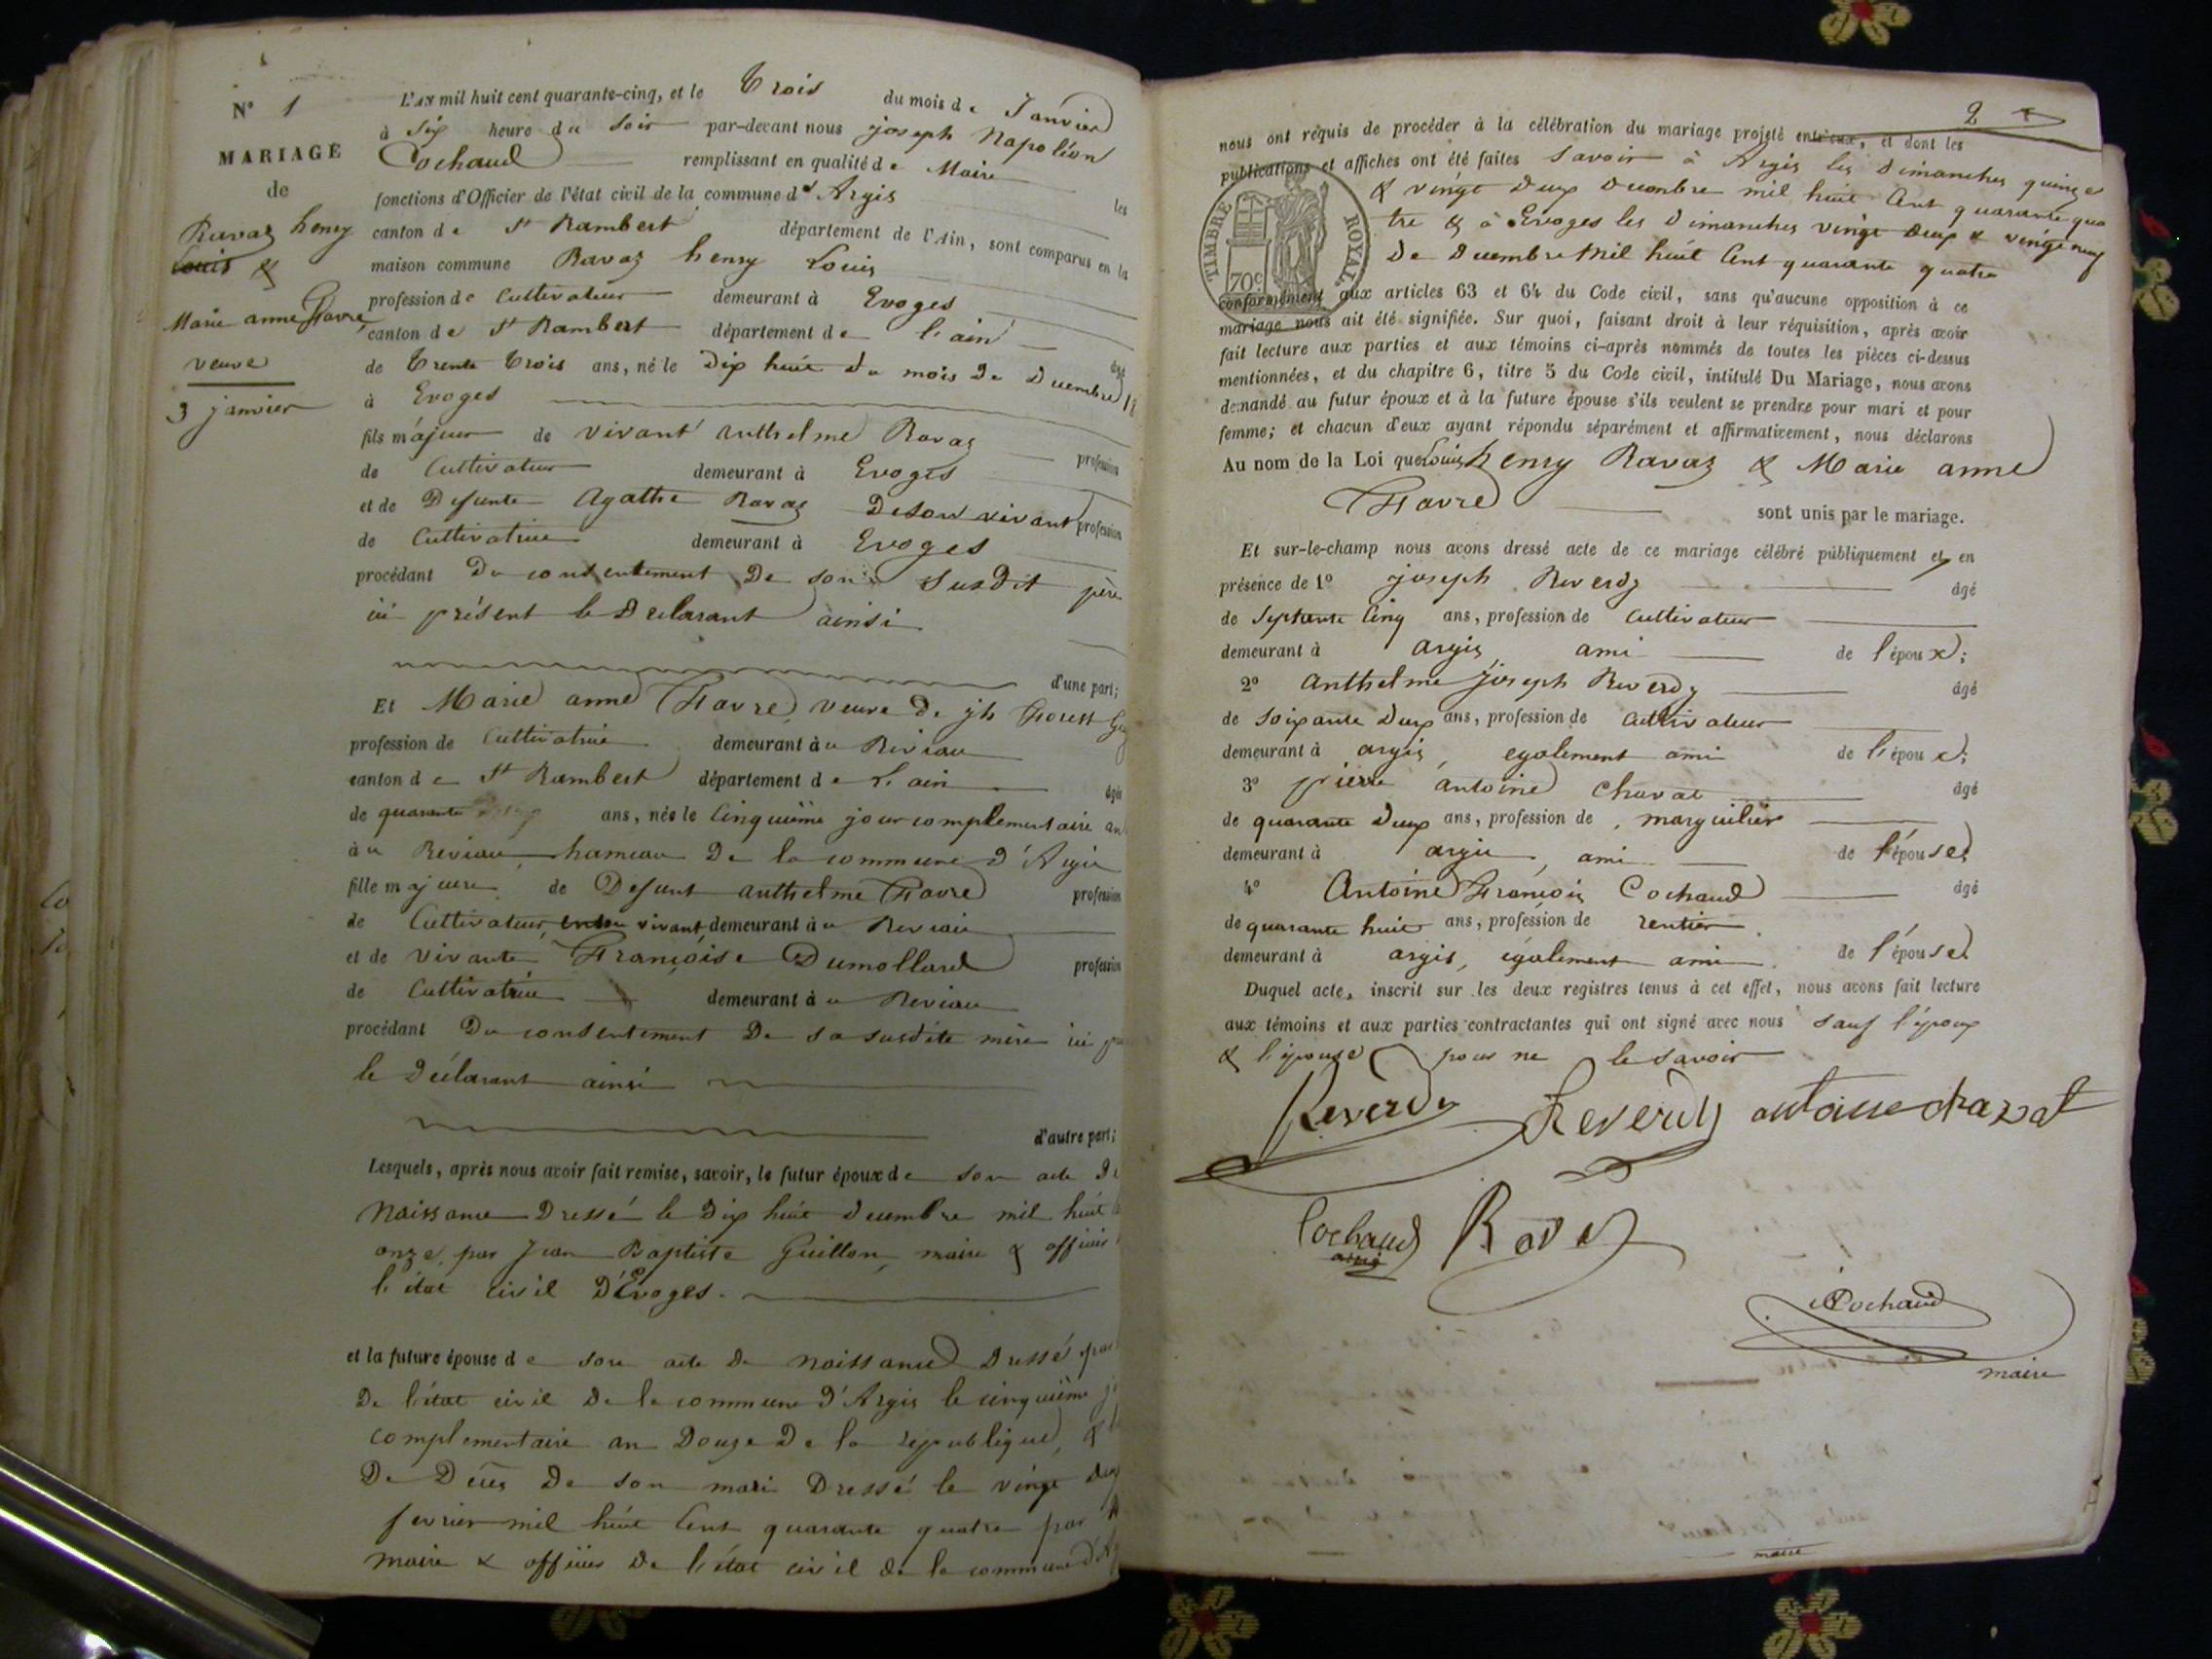 N° 1
MARIAGE
de
Ravaz henry
Louis &
Marie anne Favre
veuve
3 janvier
L'AN mil huit cent quarante-cinq, et le Trois du mois de Janvier
à Six heure du Soir par-devant nous joseph Napoléon
Cochaud remplissant en qualité de Maire les
fonctions d'Officier de l'état civil de la commune d'Argis
canton de St Rambert département de l'Ain, sont comparus en la
maison commune Ravaz henry Louis
profession de Cultivateur demeurant à Evoges
canton de St Rambert département de l'ain âgé
de Trente Trois ans, né le Dix huit du mois De Decembre 18
à Evoges
fils majeur de vivant anthelme Ravaz profession
de Cultivateur demeurant à Evoges
et de Defunte Agathe Ravaz De son vivant profession
de Cultivatrice demeurant à Evoges
procédant Du consentement De son susdit père
ici présent le Déclarant ainsi
d'une part;
Et Marie anne Favre veuve de jh
profession de Cultivatrice demeurant au Reviau
canton de St Rambert département de l'ain âgée
de quarante ans, née le Cinquième jour complementaire an
au Reviau hameau De la commune D'Argis
fille majeure de Defunt anthelme Favre profession
de Cultivateur, en son vivant demeurant au Reviau
et de vivante Françoise Dumollard profession
de Cultivatrice demeurant au Reviau
procédant Du consentement De sa susdite mère ici
le Déclarant ainsi
d'autre part;
Lesquels, après nous avoir fait remise, savoir, le futur époux de son acte De
Naissance Dressé le Dix huit decembre mil huit
onze, par Jean Baptiste Guillon, maire & officier
l'état civil D'Evoges.
et la future épouse de son acte de naissance Dressé par
De l'état civil De la commune D'Argis le cinquième
complementaire an Douze De la république, &
De Décès De son mari Dressé le vingt deux
fevrier mil huit Cent quarante quatre par
maire & officier De l'état civil de la commune
2
nous ont requis de procéder à la célébration du mariage projeté entr'eux, et dont les
publications et affiches ont été faites Savoir à Argis les dimanches quinze
& vingt Deux Decembre mil huit Cent quarante qua
tre & à Evoges les Dimanches vingt Deux & vingt neuf
De Decembre Mil huit Cent quarante quatre
TIMBRE ROYAL.
70c
conformément aux articles 63 et 64 du Code civil, sans qu'aucune opposition à ce
mariage nous ait été signifiée. Sur quoi, faisant droit à leur réquisition, après avoir
fait lecture aux parties et aux témoins ci-après nommés de toutes les pièces ci-dessus
mentionnées, et du chapitre 6, titre 5 du Code civil, intitulé Du Mariage, nous avons
demandé au futur époux et à la future épouse s'ils veulent se prendre pour mari et pour
femme; et chacun d'eux ayant répondu séparément et affirmativement, nous déclarons
Au nom de la Loi que Louis henry Ravaz & Marie anne
Favre sont unis par le mariage.
Et sur-le-champ nous avons dressé acte de ce mariage célébré publiquement et en
présence de 1° joseph Reverdy âgé
de Septante Cinq ans, profession de Cultivateur
demeurant à argis ami de l'époux;
2° anthelme joseph Reverdy âgé
de soixante Deux ans, profession de Cultivateur
demeurant à argis, egalement ami de l'époux;
3° pierre antoine Chavat âgé
de quarante Deux ans, profession de marguilier
demeurant à argis, ami de l'épouse;
4° Antoine François Cochaud âgé
de quarante huit ans, profession de rentier
demeurant à argis, également ami de l'épouse.
Duquel acte, inscrit sur les deux registres tenus à cet effet, nous avons fait lecture
aux témoins et aux parties contractantes qui ont signé avec nous Sauf l'époux
& l'épouse pour ne le Savoir
Reverdy Reverdy antoine chavat
Cochaud
Cochaud
maire
maire